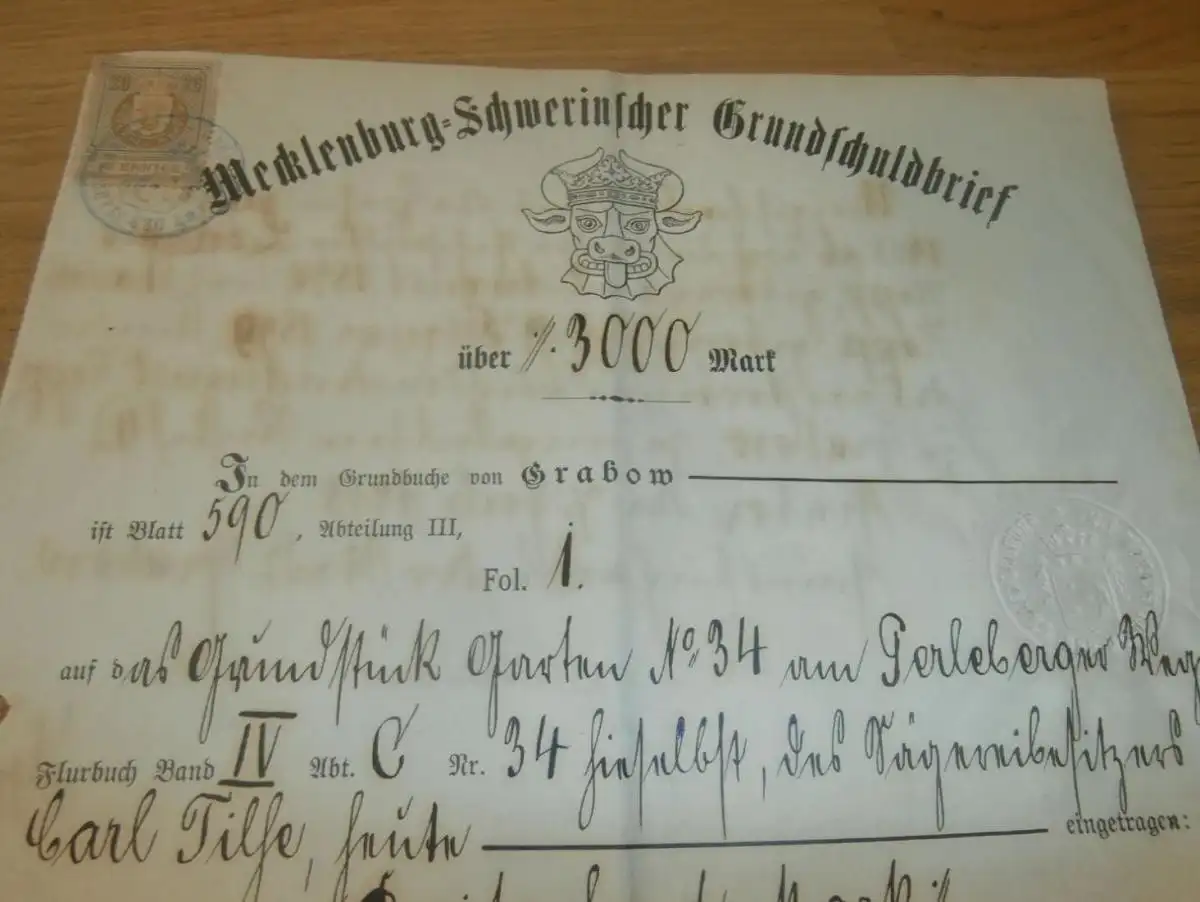 Mecklenburg-Schwerinscher Grundschuldbrief
über ⁒ 3000 Mark
In dem Grundbuche von Grabow
ist Blatt 590, Abteilung III,
Fol. 1.
auf das Grundstück Garten No 34 am Perleberger Weg
Flurbuch Band IV Abt. C Nr. 34 hieselbst, des Sägereibesitzers
Carl Tilse, heute eingetragen:
Mark